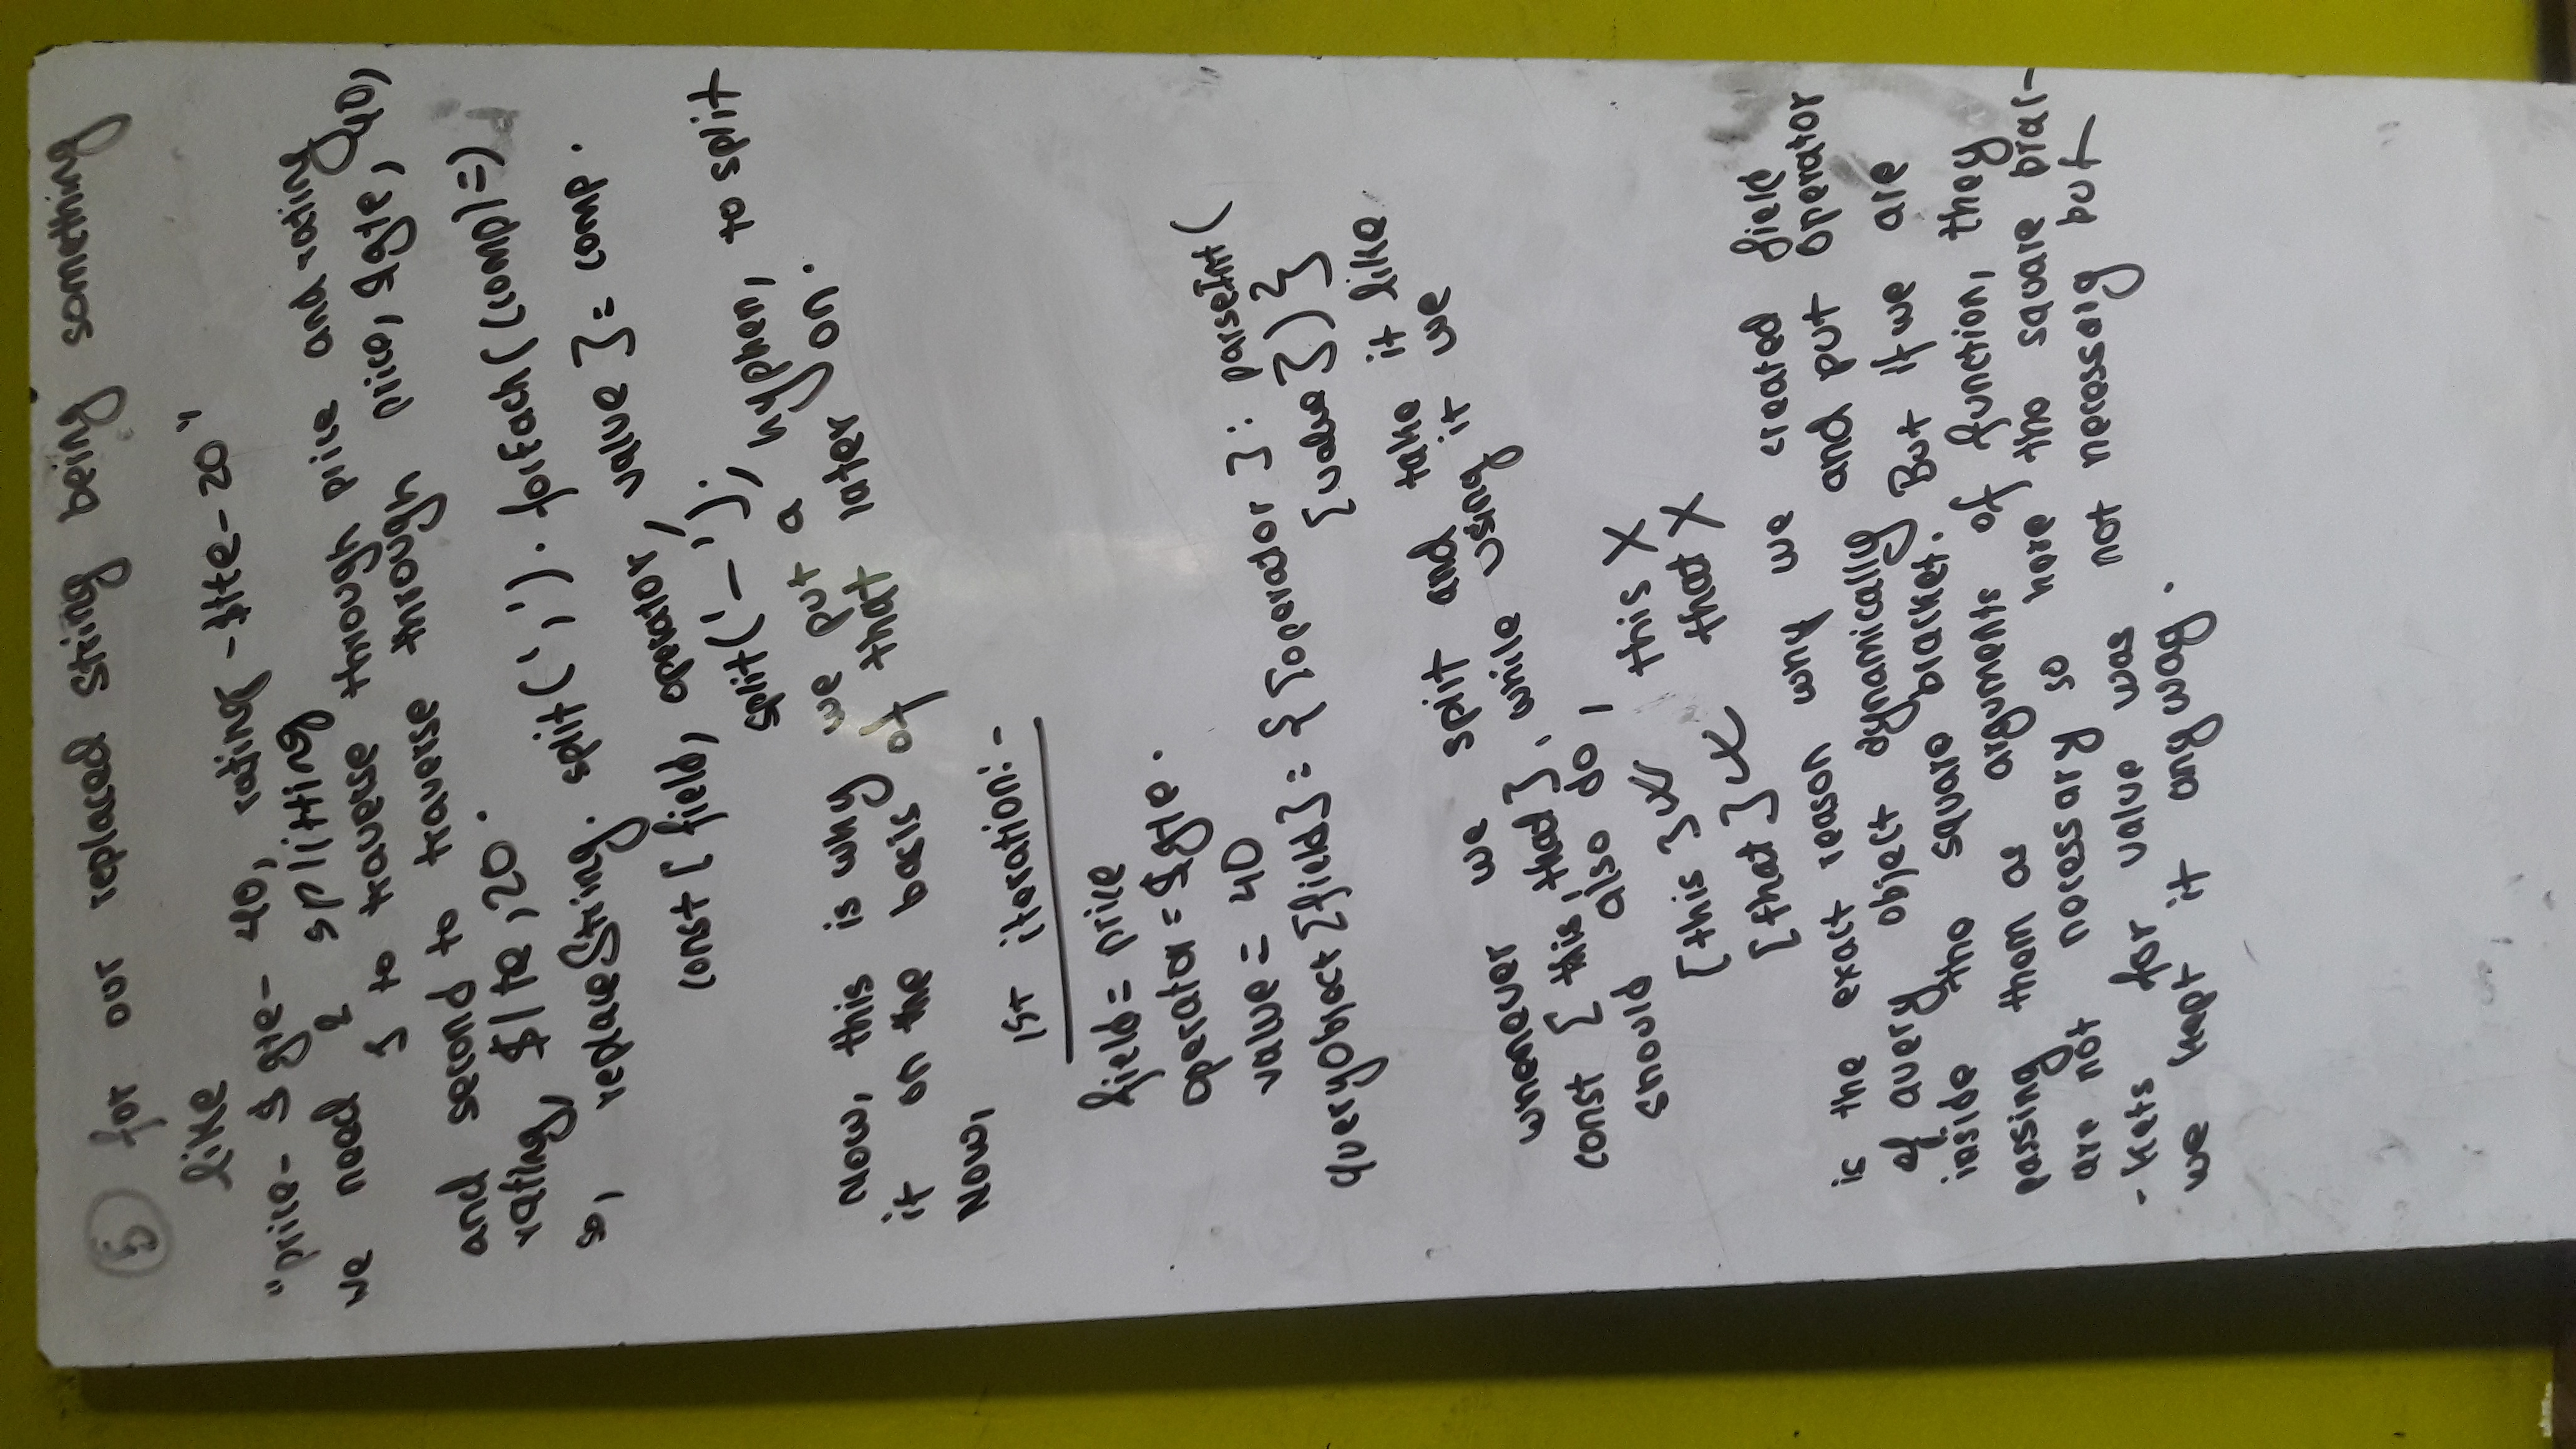 5 for our replaced string being something
like
"price-$gte-40, rating-$lte-20"
we need 2 splitting
1 to traverse through price and rating
and second to traverse through price, $gte, 40,
rating, $lte, 20.
so, replaceString.split(',').forEach((comp)=>
const [field, operator, value] = comp.
split('-');
Now, this is why we put a hyphen, to split
it on the basis of that later on.
Now,
1st iteration:-
field = price
operator = $gte.
value = 40
queryObject[field] = {[operator]: parseInt(
[value])}
whenever we split and take it like
const [this, that], while using it we
should also do,
[this] this X
[that] that X
is the exact reason why we created field
of query object dynamically and put operator
inside the square bracket. But if we are
passing them as arguments of function, they
are not necessary so here the square brac-
-kets for value was not necessary but
we kept it anyway.